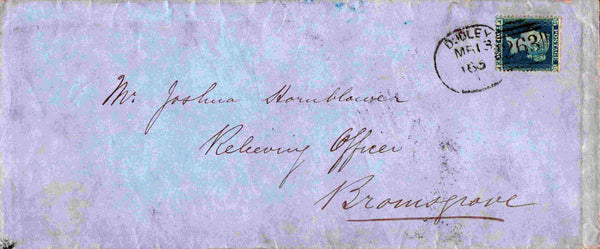 DUDLEY
MR 13
65
POSTAGE
Mr. Joshua Hornblower
Relieving Officer
Bromsgrove